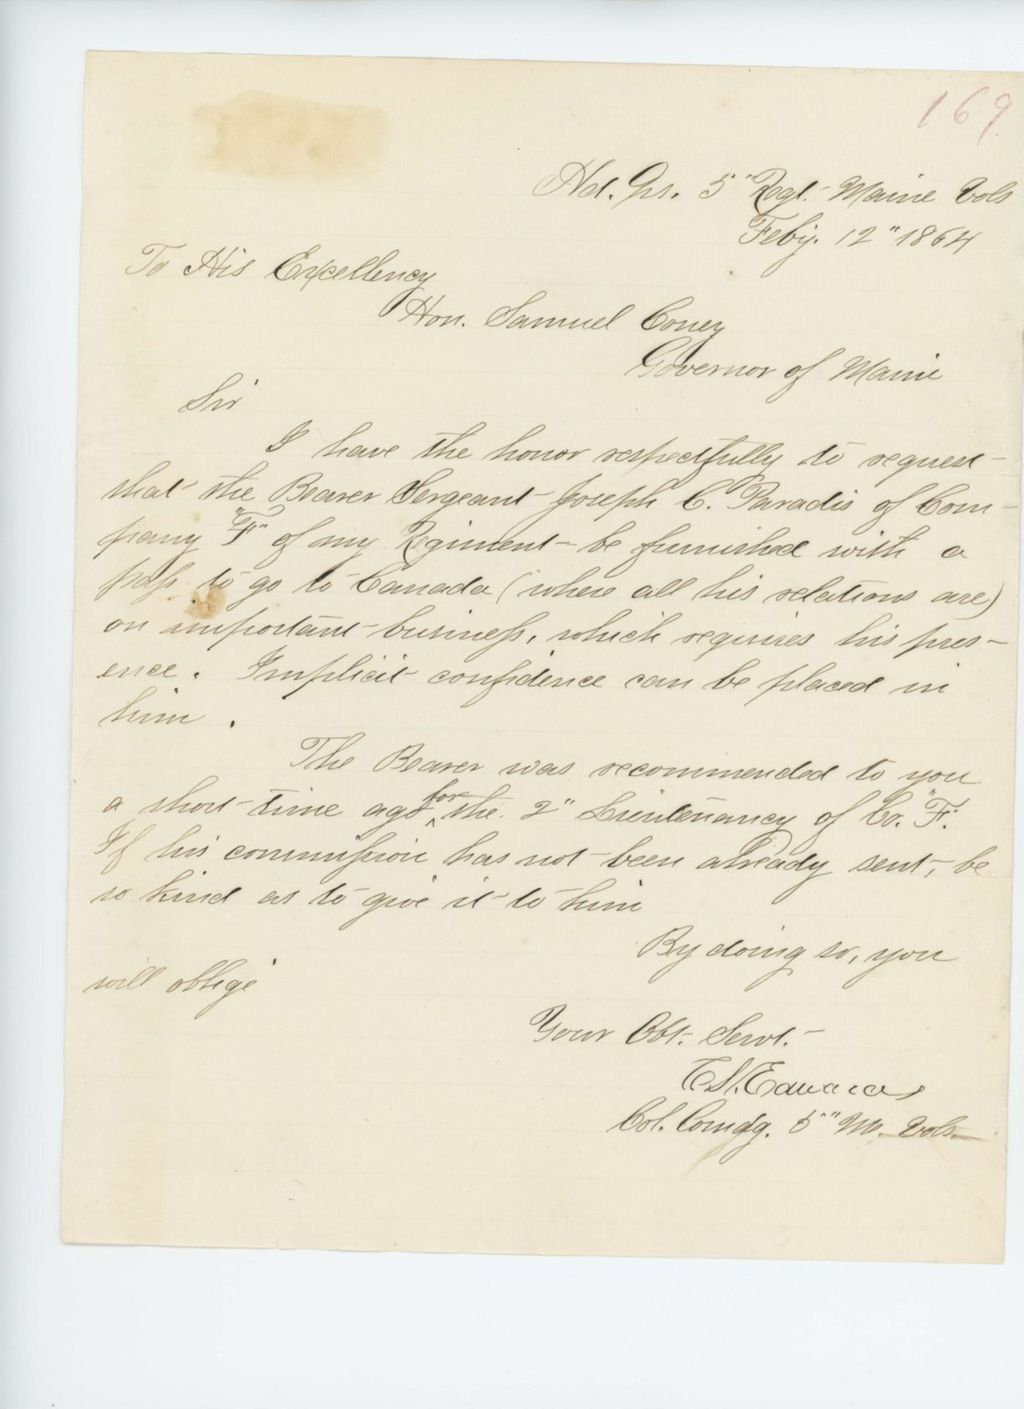 169.
Hd. Qrs. 5" Regt. Maine Vols
Feby. 12" 1864
To His Excellency
Hon. Samuel Coney
Governor of Maine
Sir
I have the honor respectfully to request
that the Bearer Sergeant Joseph C. Paradis of Com-
pany "F" of my Regiment be furnished with a
pass to go to Canada (where all his relations are)
on important business, which requires his pres-
ence. Implicit confidence can be placed in
him.
The Bearer was recommended to you
a short time ago for the 2" Lieutenancy of Co. "F".
If his commission has not been already sent, be
so kind as to give it to him
By doing so, you
will oblige
Your Obt. Servt.
C. S. Edwards
Col. Comdg. 5" M. Vols.